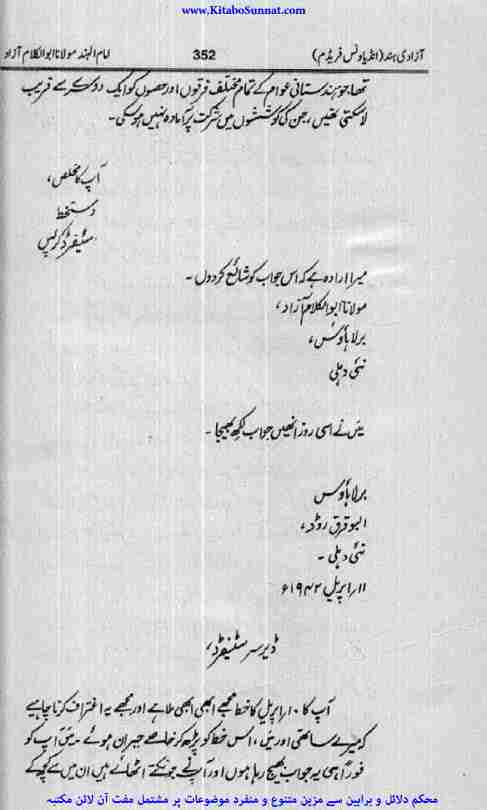 www.KitaboSunnat.com
آزادی ہند (انڈیا ونس فریڈم)
352
امام الہند مولانا ابوالکلام آزاد
تھا، جو ہندستانی عوام کے تمام مختلف فرقوں اور حصوں کو ایک دوسرے سے قریب
لا سکتی تھیں، جن کی کوششوں میں شرکت پر آمادہ نہیں ہو سکی۔
آپ کا مخلص،
دستخط
سٹیفرڈ کرپس
میرا ارادہ ہے کہ اس جواب کو شائع کر دوں۔
مولانا ابوالکلام آزاد،
برلا ہاؤس،
نئی دہلی
میں نے اسی روز انھیں جواب لکھ بھیجا۔
برلا ہاؤس
البوقرق روڈ،
نئی دہلی۔
۱۱ اپریل ۱۹۴۲ء
ڈیر سر سٹیفرڈ،
آپ کا ۱۰ اپریل کا خط مجھے ابھی ابھی ملا ہے اور مجھے یہ اعتراف کرنا چاہیے
کہ میرے ساتھی اور میں، اس خط کو پڑھ کر خاصے حیران ہوئے۔ میں آپ کو
فوراً ہی یہ جواب بھیج رہا ہوں اور آپ نے جو نکتے اٹھائے ہیں ان میں سے کچھ کے
محکم دلائل و براہین سے مزین متنوع و منفرد موضوعات پر مشتمل مفت آن لائن مکتبہ